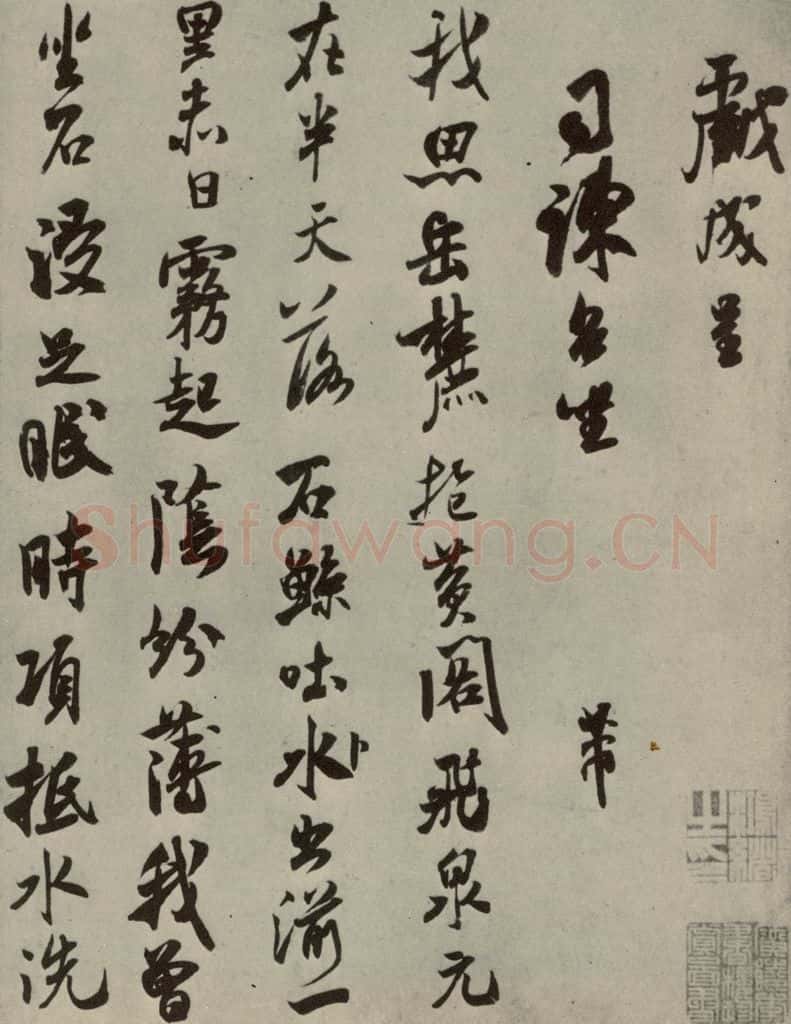 戲成呈
司諫台坐 芾
我思岳麓抱黃閣飛泉元
在半天落石鯨吐水出湔一
里赤日霧起陰紛薄我曾
坐石浸足眠時項抵水洗
Shufawang.CN